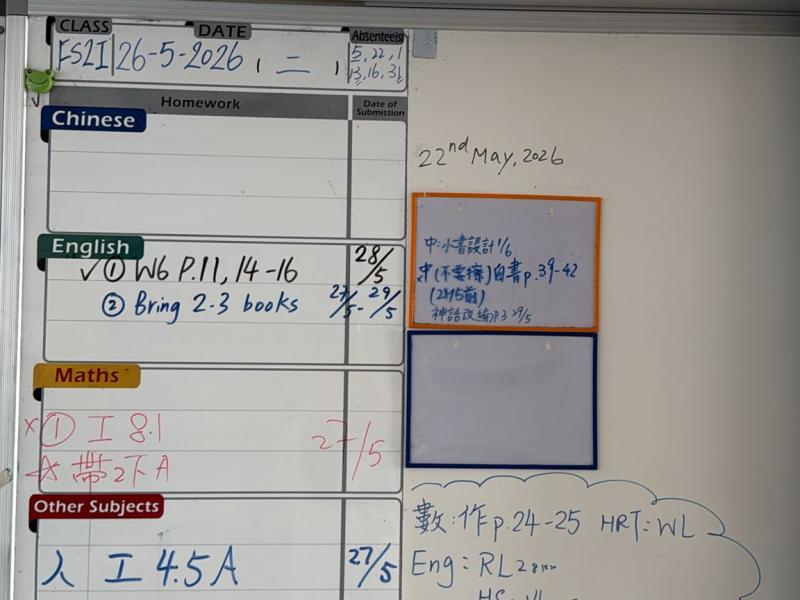 CLASS DATE Absentee(s)
FS2I 26-5-2026 ( 二 ) 5, 22, 1
13, 16, 31
Homework Date of Submission
Chinese
English
✓ ① WB P.11, 14-16 28/5
② Bring 2-3 books 27/5 - 29/5
Maths
× ① 工 8.1 27/5
帶2下A
Other Subjects
人 工 4.5A 27/5
22nd May, 2026
中:小書設計 1/6
中(不要擦)白書p.39-42
神話改編P.3 29/5
數:作p.24-25 HRT: WL
Eng: RL2